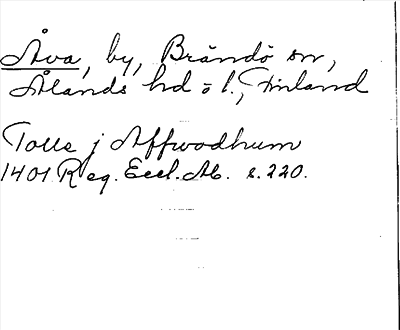 Åva, by, Brändö sn,
Ålands hd o l., Finland
Tolle j Affwodhum
1401 Reg. Eccl. Ab. s. 220.